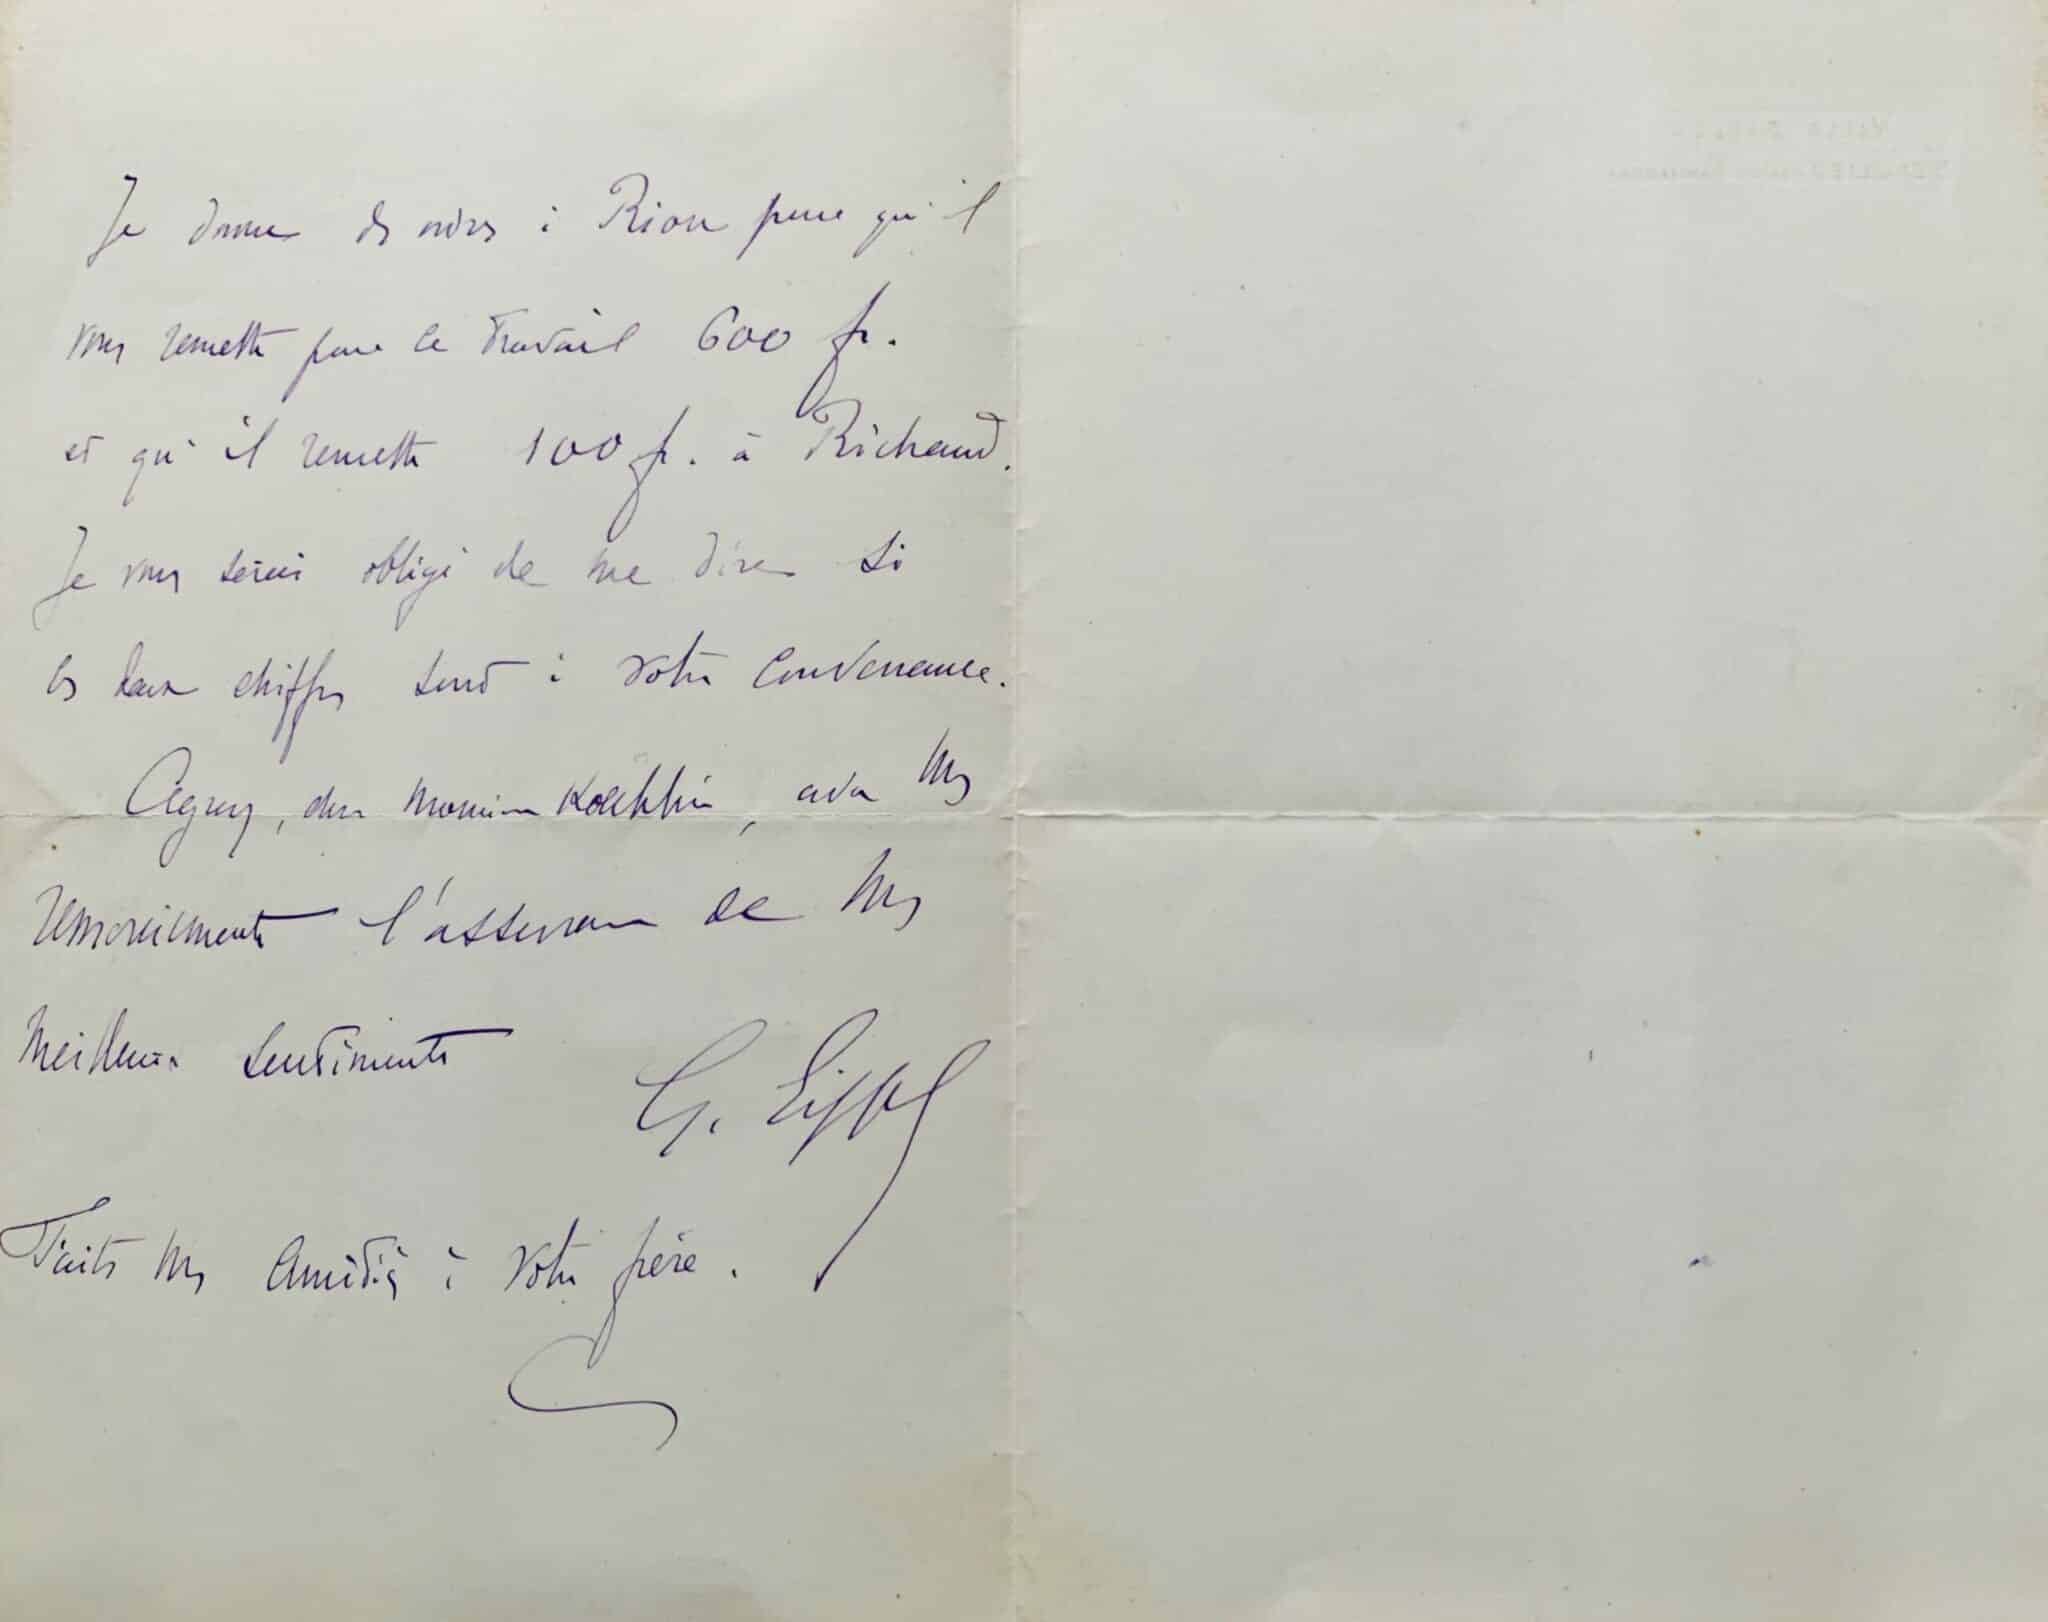 Je donne des ordres à Rion pour qu'il
vous remette pour ce travail 600 fr.
et qu'il remette 100 fr. à Richaud.
Je vous serais obligé de me dire si
ces deux chiffres sont à votre convenance.
Agréez, cher Monsieur Koechlin, avec mes
remerciements l'assurance de mes
meilleurs sentiments
G. Eiffel
Faites mes amitiés à votre frère.